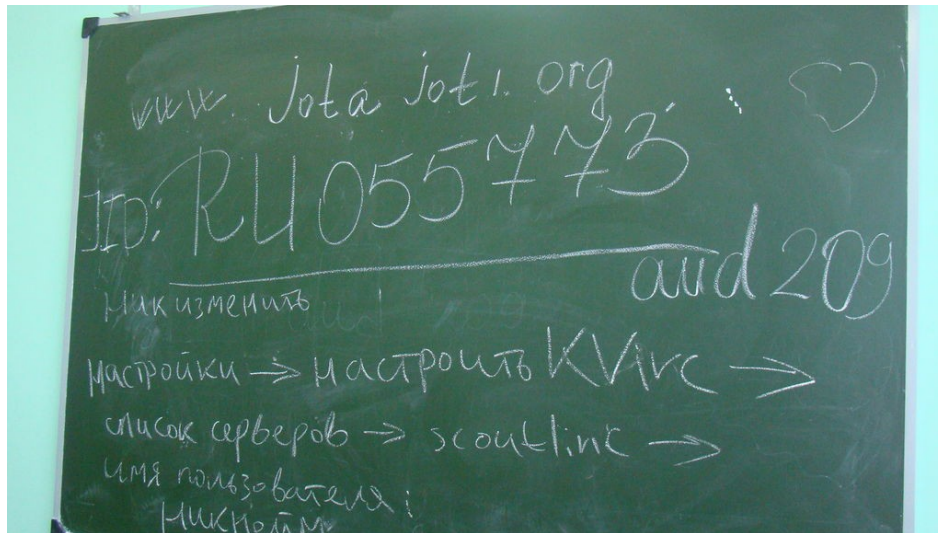 www. jotajoti.org
JID: RU055773
aud 209
Ник изменить
настройки → настроить KVIrc →
список серверов → scoutlink →
имя пользователя;
никнейм